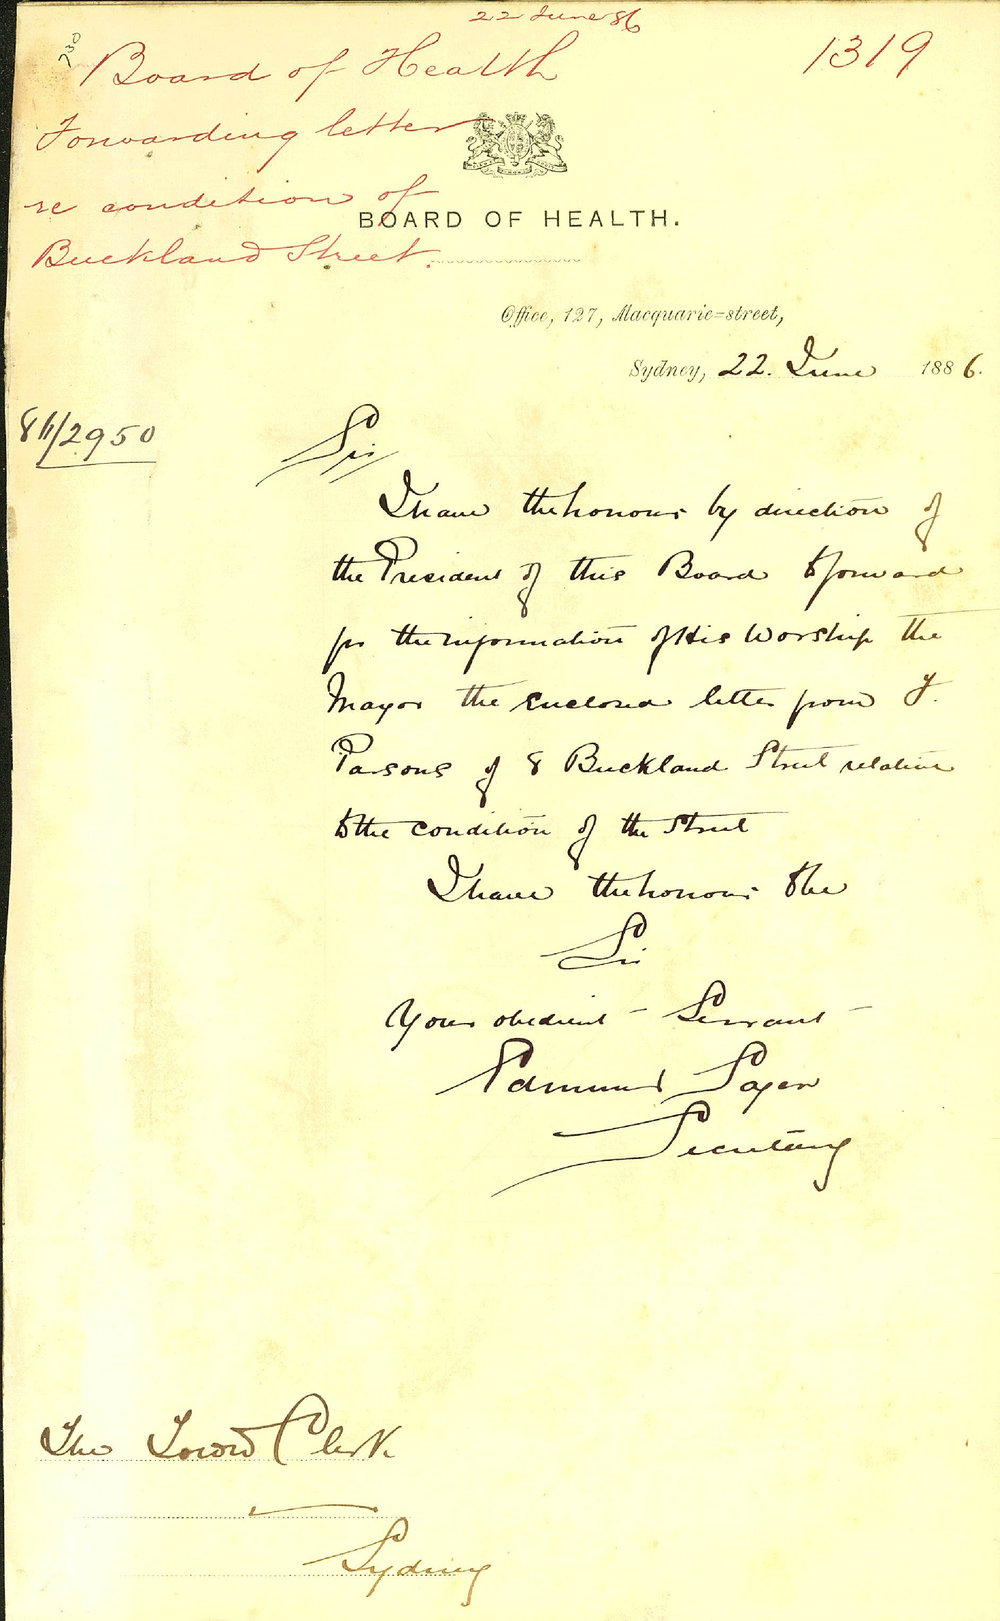 22 June 86
730
1319
Board of Health
Forwarding letter
re condition of
Buckland Street.
BOARD OF HEALTH.
Office, 127, Macquarie=street,
Sydney, 22. June 1886.
86/2950
Sir
I have the honour by direction of
the President of this Board to forward
for the information of His Worship the
Mayor the enclosed letter from
Parsons of 8 Buckland Street relative
to the condition of the Street
I have the honour to be
Sir
Your obedient Servant
Edmund Sager
Secretary
The Town Clerk
Sydney